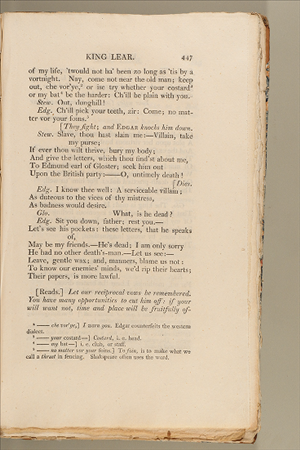 KING LEAR. 447
of my life, 'twould not ha' been zo long as 'tis by a
vortnight. Nay, come not near the old man; keep
out, che vor'ye,⁶ or ise try whether your costard⁷
or my bat⁸ be the harder: Ch'ill be plain with you.
Stew. Out, dunghill!
Edg. Ch'ill pick your teeth, zir: Come; no mat-
ter vor your foins.⁹
[They fight; and EDGAR knocks him down.
Stew. Slave, thou hast slain me:—Villain, take
my purse;
If ever thou wilt thrive, bury my body;
And give the letters, which thou find'st about me,
To Edmund earl of Gloster; seek him out
Upon the British party:——O, untimely death!
[Dies.
Edg. I know thee well: A serviceable villain;
As duteous to the vices of thy mistress,
As badness would desire.
Glo. What, is he dead?
Edg. Sit you down, father; rest you.—
Let's see his pockets: these letters, that he speaks
of,
May be my friends.—He's dead; I am only sorry
He had no other death's-man.—Let us see:—
Leave, gentle wax; and, manners, blame us not:
To know our enemies' minds, we'd rip their hearts;
Their papers, is more lawful.
[Reads.] Let our reciprocal vows be remembered.
You have many opportunities to cut him off: if your
will want not, time and place will be fruitfully of-
⁶ —— che vor'ye,] I warn you. Edgar counterfeits the western
dialect.
⁷ —— your costard—] Costard, i. e. head.
⁸ —— my bat—] i. e. club, or staff.
⁹ —— no matter vor your foins.] To foin, is to make what we
call a thrust in fencing. Shakspeare often uses the word.